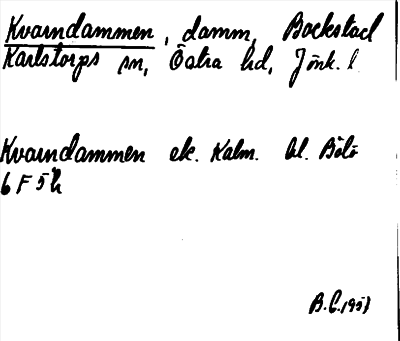 Kvarndammen, damm, Bockstad
Karlstorps sn, Östra hd, Jönk. l
Kvarndammen ek. Kalm. bl. Bölö
6 F 5 h
B.C. 1951